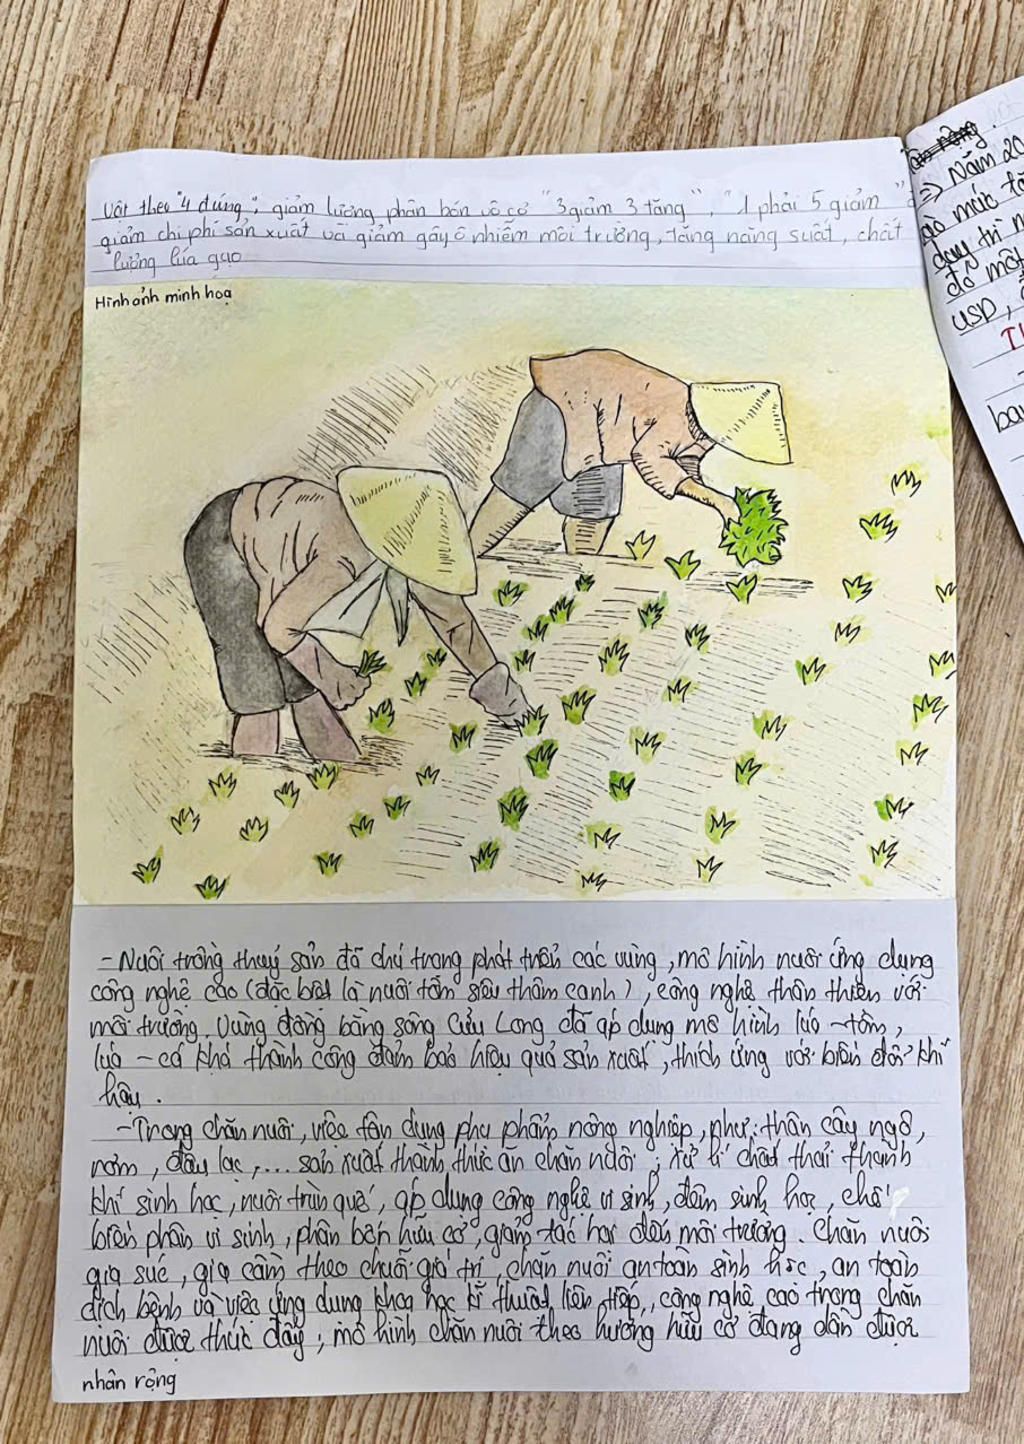 vật theo "4 đúng"; giảm lượng phân bón vô cơ "3 giảm 3 tăng", "1 phải 5 giảm"
giảm chi phí sản xuất và giảm gây ô nhiễm môi trường, tăng năng suất, chất
lượng lúa gạo
Hình ảnh minh hoạ
- Nuôi trồng thuỷ sản đã chú trọng phát triển các vùng, mô hình nuôi ứng dụng
công nghệ cao (đặc biệt là nuôi tôm siêu thâm canh), công nghệ thân thiện với
môi trường. Vùng đồng bằng sông Cửu Long đã áp dụng mô hình lúa - tôm,
lúa - cá khá thành công đảm bảo hiệu quả sản xuất, thích ứng với biến đổi khí
hậu.
- Trong chăn nuôi, việc tận dụng phụ phẩm nông nghiệp, như: thân cây ngô,
rơm, đậu lạc,... sản xuất thành thức ăn chăn nuôi; xử lí chất thải thành
khí sinh học, nuôi trùn quế, áp dụng công nghệ vi sinh, đệm sinh học, chế
biến phân vi sinh, phân bón hữu cơ, giảm tác hại đến môi trường. Chăn nuôi
gia súc, gia cầm theo chuỗi giá trị, chăn nuôi an toàn sinh học, an toàn
dịch bệnh và việc ứng dụng khoa học kĩ thuật tiên tiến, công nghệ cao trong chăn
nuôi được thúc đẩy; mô hình chăn nuôi theo hướng hữu cơ đang dần được
nhân rộng
=> Năm 20
duy trì
đó một
USD,